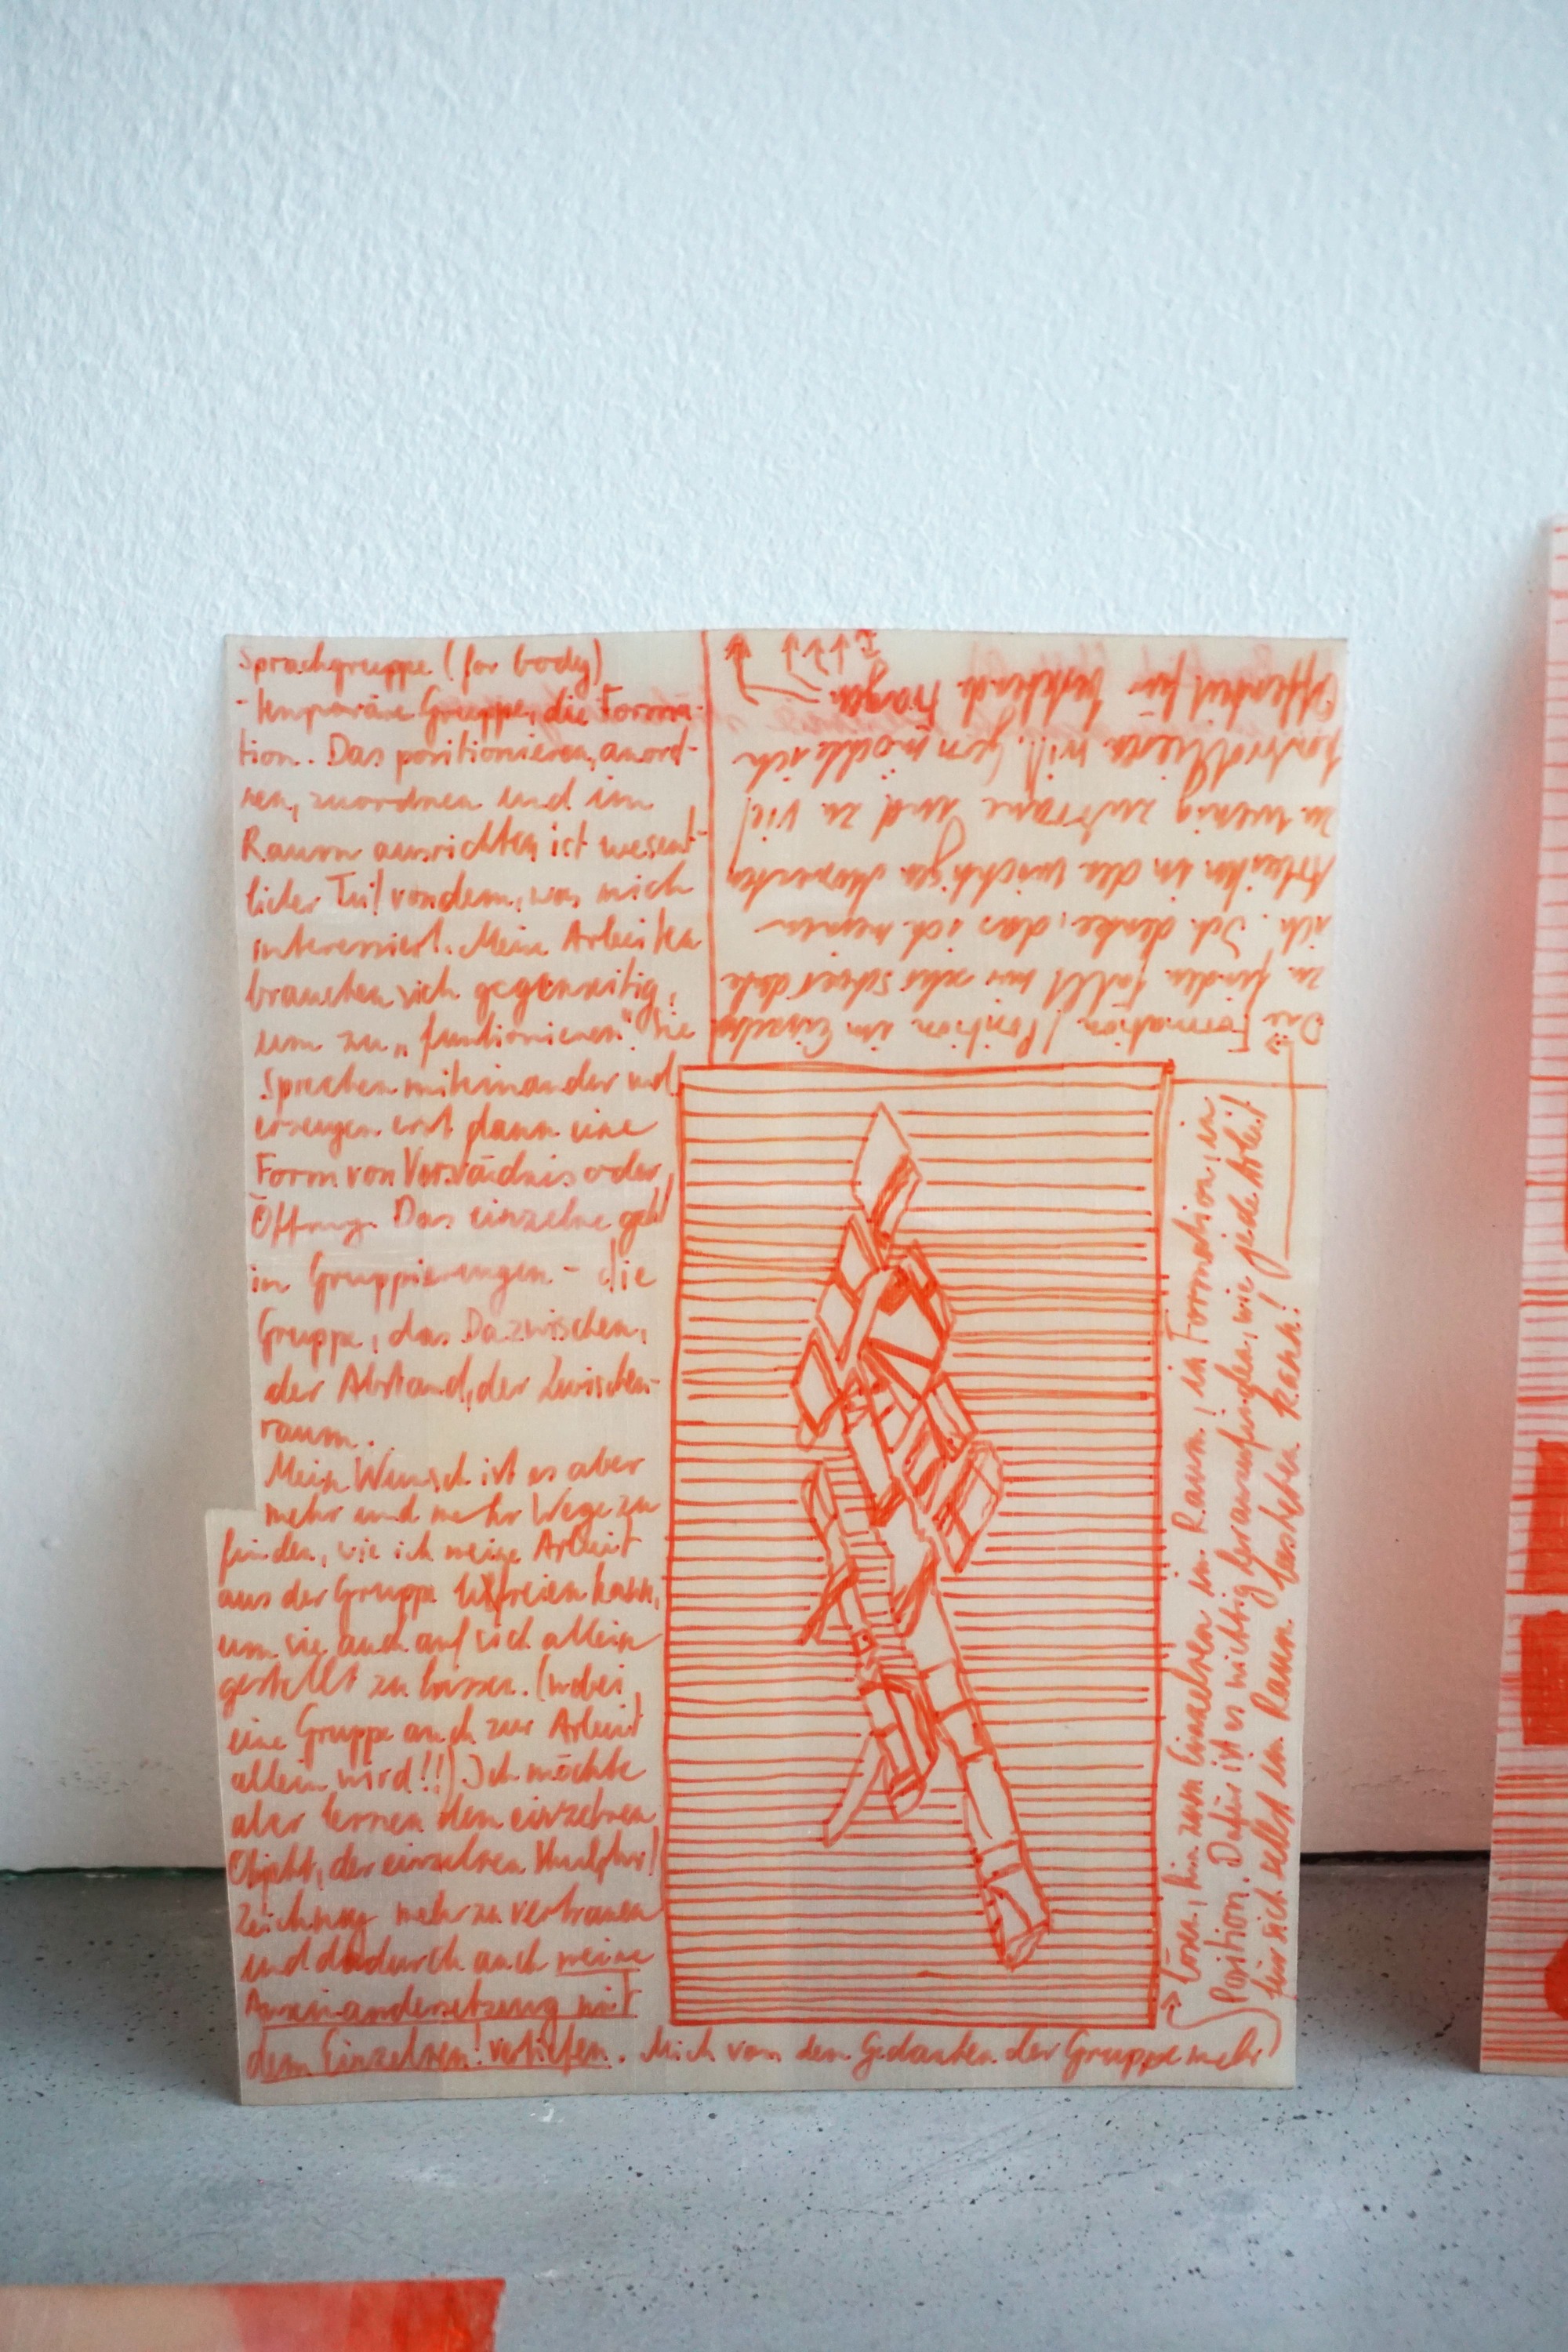 Sprachgruppe (for body)
- temporäre Gruppe, die Forma-
tion. Das positionieren, anord-
nen, zuordnen und im
Raum ausrichten ist wesent-
licher Teil von dem, was mich
interessiert. Meine Arbeiten
brauchen sich gegenseitig,
um zu „funktionieren". Sie
sprechen miteinander und
erzeugen erst dann eine
Form von Verständnis oder
Öffnung. Das einzelne geht
in Gruppierungen - die
Gruppe, das Dazwischen,
der Abstand, der Zwischen-
raum.
Mein Wunsch ist es aber
mehr und mehr Wege zu
finden, wie ich meine Arbeit
aus der Gruppe befreien kann,
um sie auch auf sich allein
gestellt zu lassen. (wobei
eine Gruppe auch zur Arbeit
allein wird!!) Ich möchte
aber lernen dem einzelnen
Objekt, der einzelnen Skulptur/
Zeichnung mehr zu vertrauen
und dadurch auch meine
Auseinandersetzung mit
dem Einzelnen! vertiefen. Mich von dem Gedanken der Gruppe mehr
lösen, hin zum Einzelnen im Raum, in Formation, in
Position. Dafür ist es wichtig herauszufinden, wie jede Arbeit
für sich selbst im Raum bestehen kann!
Die Formation / Position im Einzelnen
zu finden fällt mir sehr schwer
ich. Ich denke, das ich meinen
Arbeiten in den wichtigen Momenten
zu wenig zutraue und zu viel
kontrollieren will. Gern möchte ich
Offenheit für bestehende Fragen